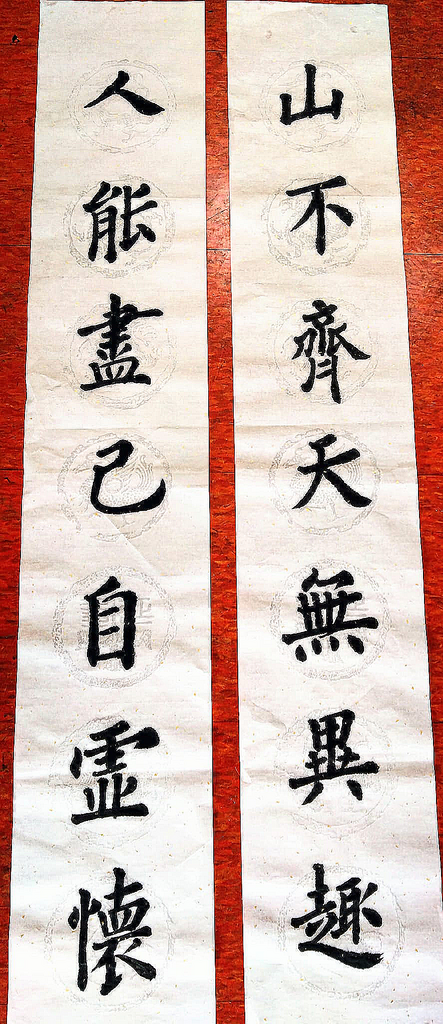 山不齊天無異趣
人能盡己自虛懷